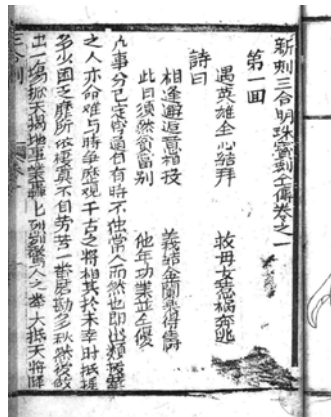 新刻三合明珠寶劍全傳卷之一
第一回
遇英雄全心結拜 救母女惹禍奔逃
詩曰
相逢邂逅意相投 義結金蘭得
此日須然貧富別 他年功業並
凡事分已定皆有有時不独常人而然也即出類拔萃
之人亦命难与時争歷观千古之將相其於未幸時抵搖
多少困乏靡所依棲真不自劳苦一畨磨勵多秋然後做
出一場掀天揭地事業轟轟烈烈驚人之大抵天將降
三合剑